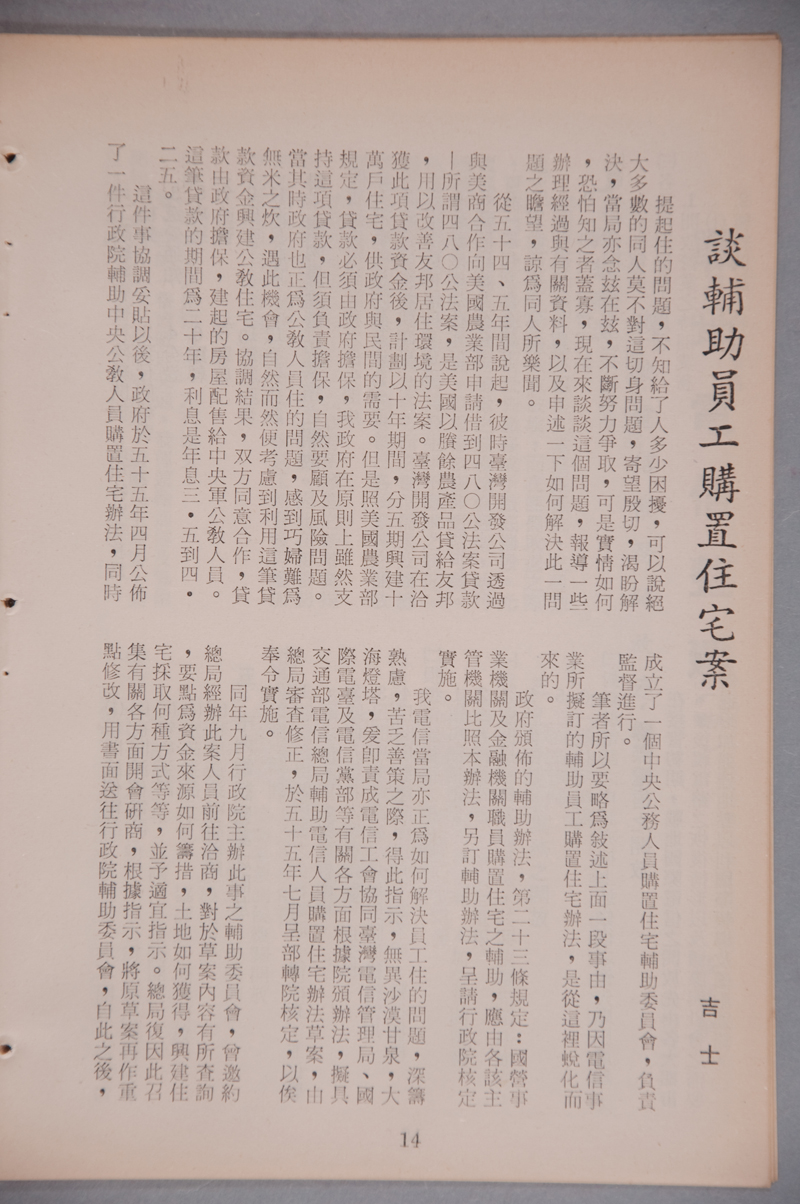 談輔助員工購置住宅案
吉士
提起住的問題，不知給了人多少困擾，可以說絕
大多數的同人莫不對這切身問題，寄望殷切，渴盼解
決，當局亦念茲在茲，不斷努力爭取，可是實情如何
，恐怕知之者蓋寡，現在來談談這個問題，報導一些
辦理經過與有關資料，以及申述一下如何解決此一問
題之瞻望，諒爲同人所樂聞。
從五十四、五年間說起，彼時臺灣開發公司透過
與美商合作向美國農業部申請借到四八〇公法案貸款
—所謂四八〇公法案，是美國以賸餘農產品貸給友邦
，用以改善友邦居住環境的法案。臺灣開發公司在洽
獲此項貸款資金後，計劃以十年期間，分五期興建十
萬戶住宅，供政府與民間的需要。但是照美國農業部
規定，貸款必須由政府擔保，我政府在原則上雖然支
持這項貸款，但須負責擔保，自然要顧及風險問題。
當其時政府也正爲公教人員住的問題，感到巧婦難爲
無米之炊，遇此機會，自然而然便考慮到利用這筆貸
款資金興建公教住宅。協調結果，双方同意合作，貸
款由政府擔保，建起的房屋配售給中央軍公教人員。
這筆貸款的期間爲二十年，利息是年息三・五到四・
二五。
這件事協調妥貼以後，政府於五十五年四月公佈
了一件行政院輔助中央公教人員購置住宅辦法，同時
成立了一個中央公務人員購置住宅輔助委員會，負責
監督進行。
筆者所以要略爲敍述上面一段事由，乃因電信事
業所擬訂的輔助員工購置住宅辦法，是從這裡蛻化而
來的。
政府頒佈的輔助辦法，第二十三條規定：國營事
業機關及金融機關職員購置住宅之輔助，應由各該主
管機關比照本辦法，另訂輔助辦法，呈請行政院核定
實施。
我電信當局亦正爲如何解決員工住的問題，深籌
熟慮，苦乏善策之際，得此指示，無異沙漠甘泉，大
海燈塔，爰卽責成電信工會協同臺灣電信管理局、國
際電臺及電信黨部等有關各方面根據院頒辦法，擬具
交通部電信總局輔助電信人員購置住宅辦法草案，由
總局審查修正，於五十五年七月呈部轉院核定，以俟
奉令實施。
同年九月行政院主辦此事之輔助委員會，曾邀約
總局經辦此案人員前往洽商，對於草案內容有所查詢
，要點爲資金來源如何籌措，土地如何獲得，興建住
宅採取何種方式等等，並予適宜指示。總局復因此召
集有關各方面開會研商，根據指示，將原草案再作重
點修改，用書面送往行政院輔助委員會，自此之後，
14